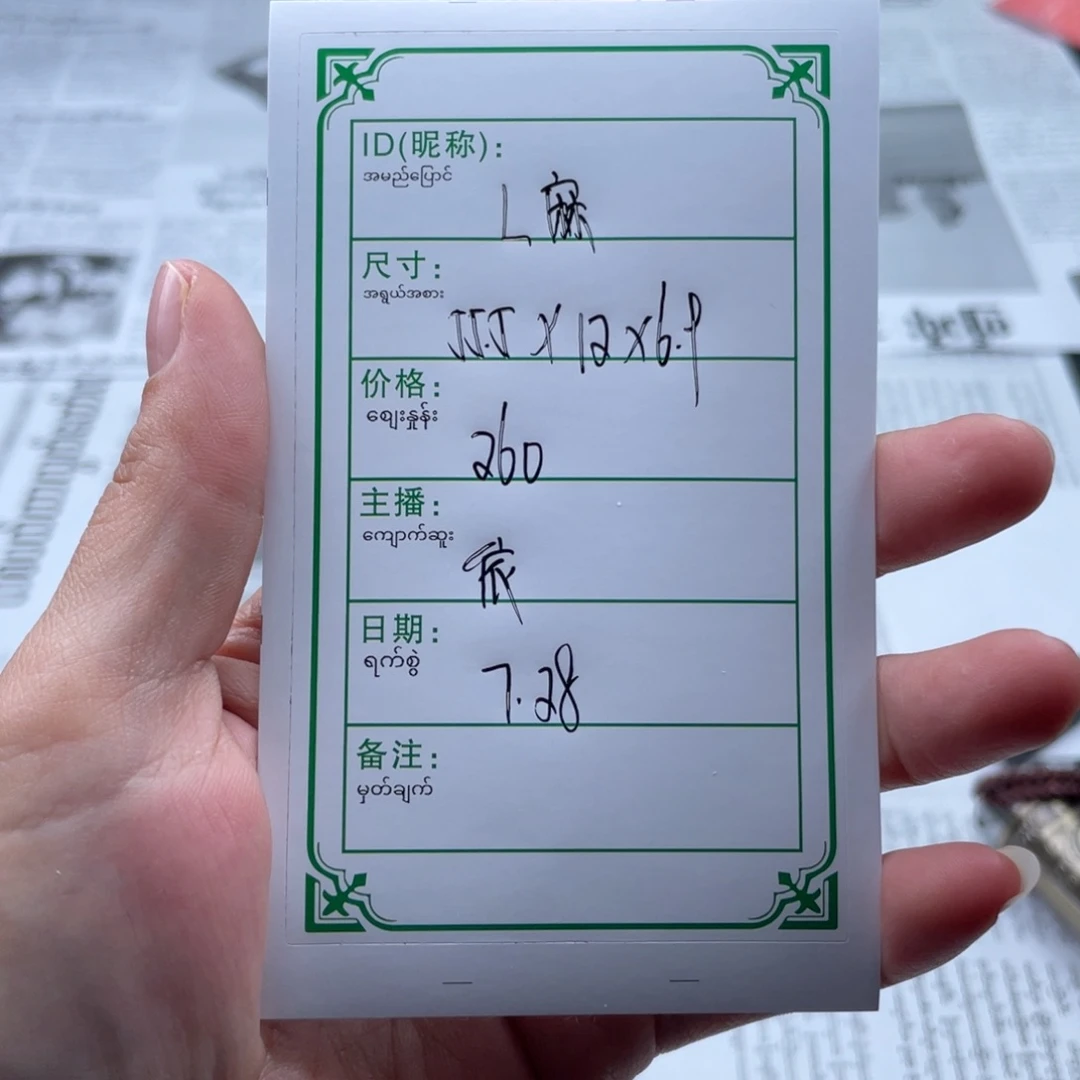 ID(昵称):
အမည်ပြောင်
L 麻
尺寸:
အရွယ်အစား
55.5 x 12 x 6.9
价格:
ဈေးနှုန်း
260
主播:
ကျောက်ဆူး
日期:
ရက်စွဲ
7.28
备注:
မှတ်ချက်